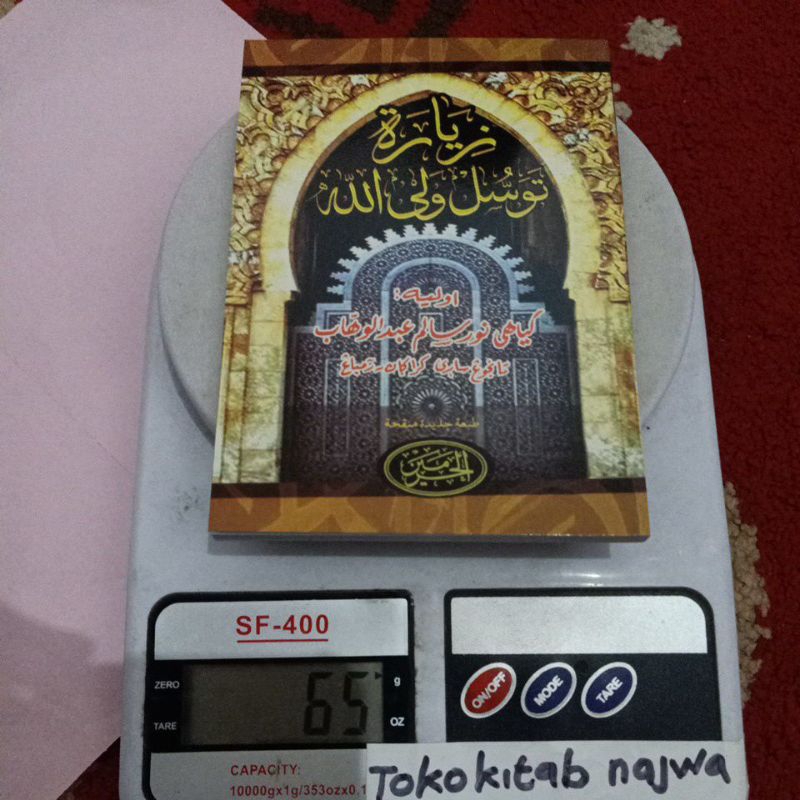 زيارة
توسل ولى الله
اوليه:
كياهي نور سالم عبد الوهاب
تانجوڠ ساري كراكان - رمباڠ
طبعة جديدة منقحة
الحرمين
SF-400
ZERO
TARE
65
g
OZ
ON/OFF
MODE
TARE
CAPACITY:
10000gx1g/353ozx0.1
Toko kitab najwa